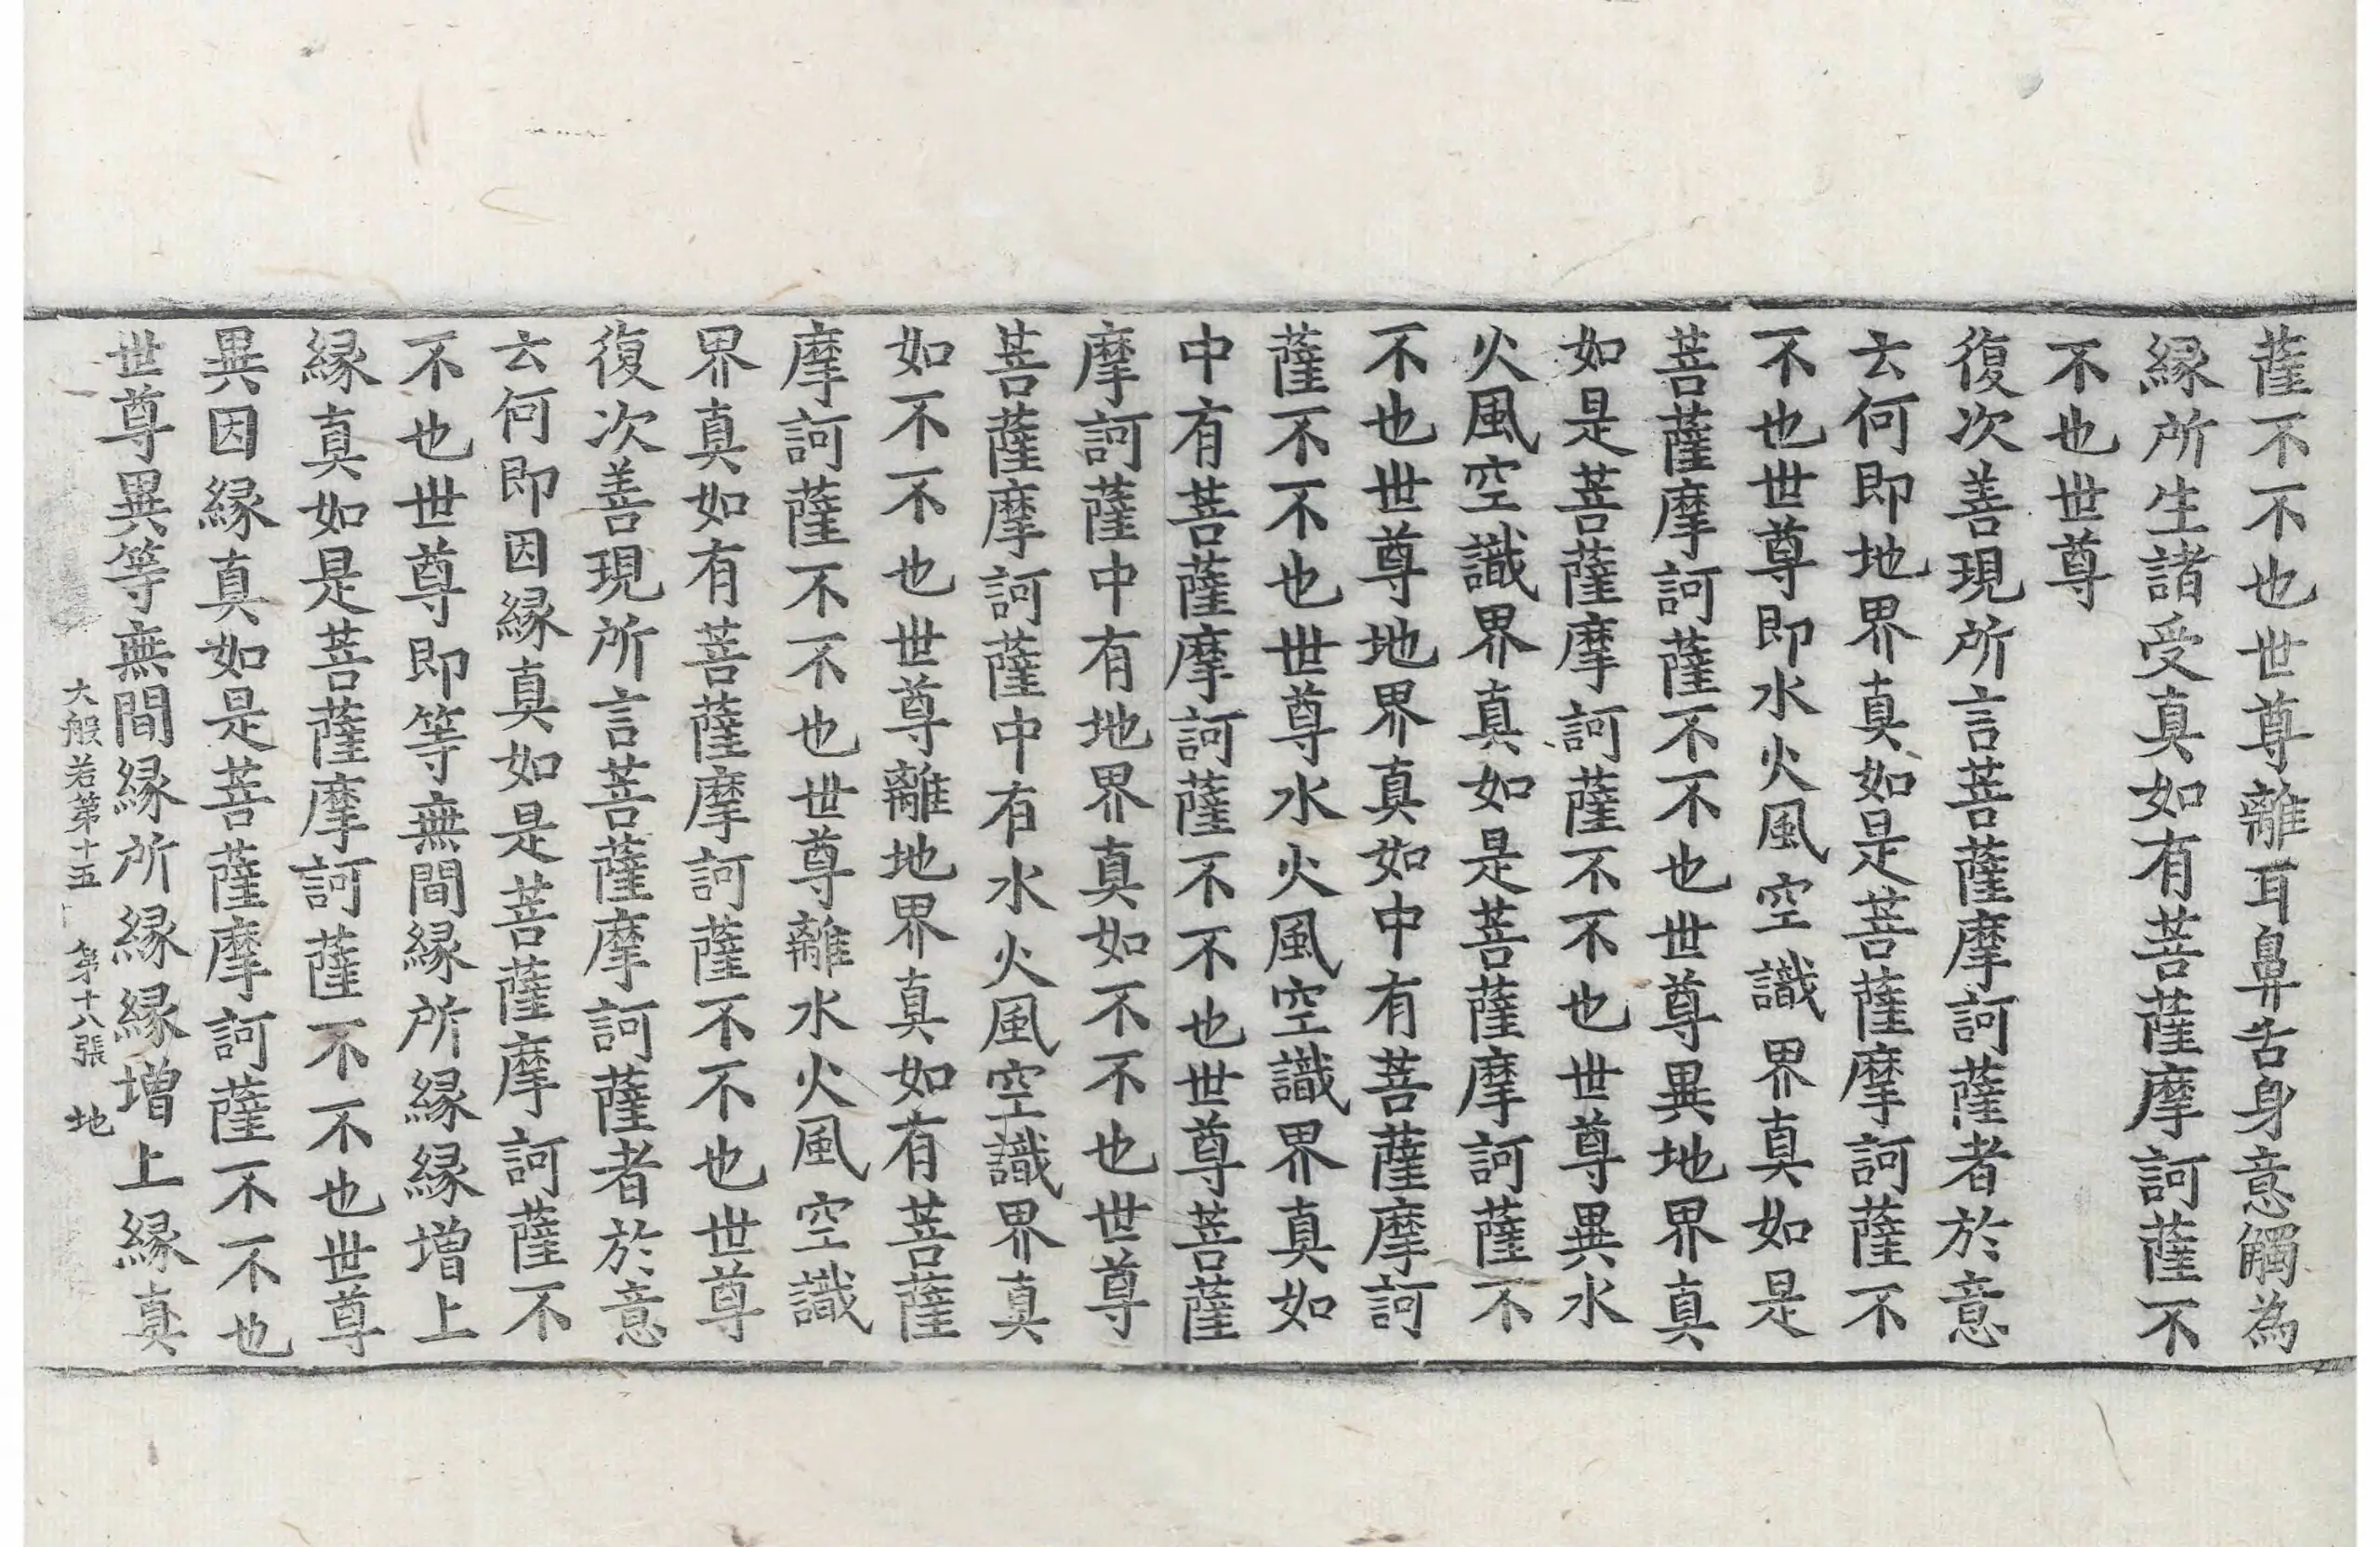 薩不不也世尊離耳鼻舌身意觸為
縁所生諸受真如有菩薩摩訶薩不
不也世尊
復次善現所言菩薩摩訶薩者於意
云何即地界真如是菩薩摩訶薩不
不也世尊即水火風空識界真如是
菩薩摩訶薩不不也世尊異地界真
如是菩薩摩訶薩不不也世尊異水
火風空識界真如是菩薩摩訶薩不
不也世尊地界真如中有菩薩摩訶
薩不不也世尊水火風空識界真如
中有菩薩摩訶薩不不也世尊菩薩
摩訶薩中有地界真如不不也世尊
菩薩摩訶薩中有水火風空識界真
如不不也世尊離地界真如有菩薩
摩訶薩不不也世尊離水火風空識
界真如有菩薩摩訶薩不不也世尊
復次善現所言菩薩摩訶薩者於意
云何即因縁真如是菩薩摩訶薩不
不也世尊即等無間縁所縁縁增上
縁真如是菩薩摩訶薩不不也世尊
異因縁真如是菩薩摩訶薩不不也
世尊異等無間縁所縁縁增上縁真
大般若第十五 第十八張 地